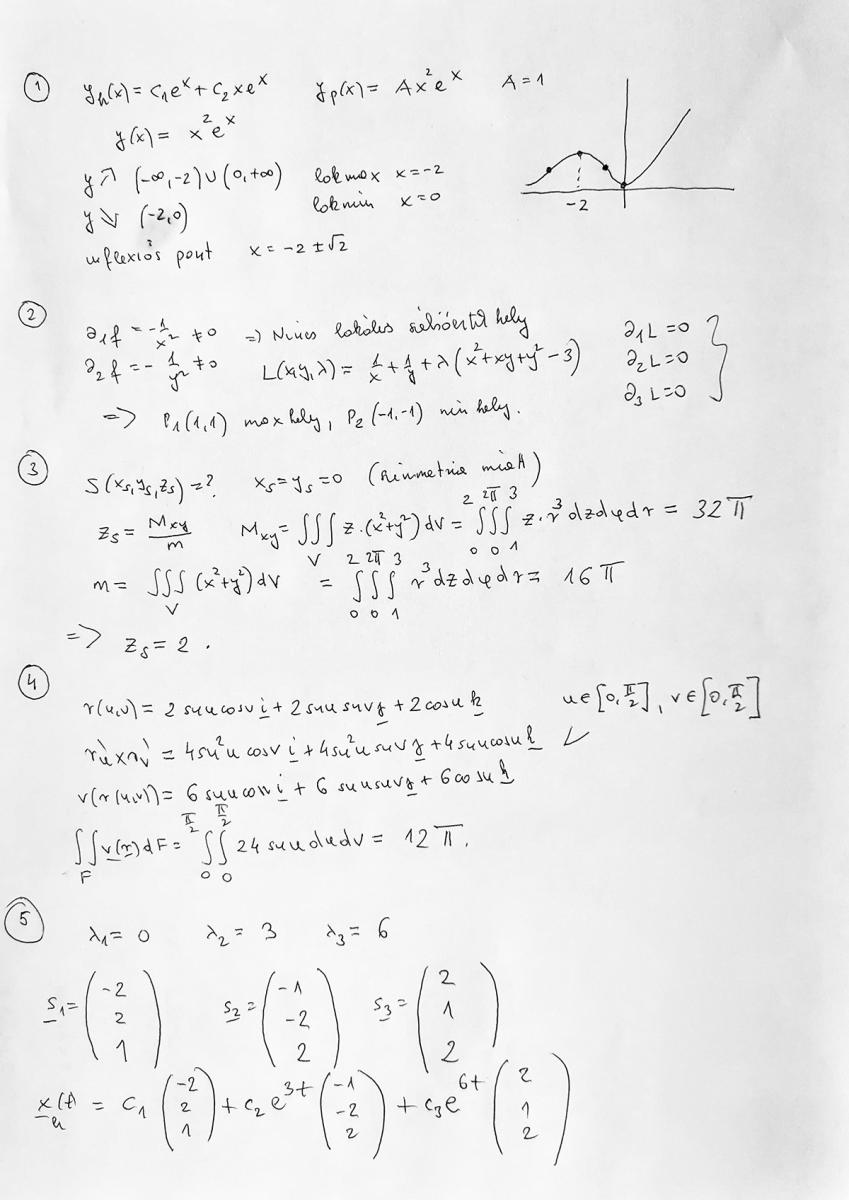 1 y_h(x) = C₁eˣ + C₂xeˣ y_p(x) = Ax²eˣ A = 1
y(x) = x²eˣ
y ↗ (-∞,-2)∪(0,+∞) lok max x = -2
y ↘ (-2,0) lok min x = 0
-2
inflexiós pont x = -2 ± √2
2 ∂₁f = -1/x² ≠ 0 => Nincs lokális szélsőérték hely ∂₁L = 0
∂₂f = -1/y² ≠ 0 L(x,y,λ) = 1/x + 1/y + λ(x²+xy+y²-3) ∂₂L = 0
∂₃L = 0 }
=> P₁(1,1) max hely, P₂(-1,-1) min hely.
3 S(x_s,y_s,z_s) = ? x_s = y_s = 0 (szimmetria miatt)
z_s = M_xy/m M_xy = ∭_V z·(x²+y²)dV = ∫₀² ∫₀^2π ∫₁³ z·r³ dz dφ dr = 32π
m = ∭_V (x²+y²)dV = ∫₀² ∫₀^2π ∫₁³ r³ dz dφ dr = 16π
=> z_s = 2.
4 r(u,v) = 2 sinu cosv i + 2 sinu sinv j + 2 cosu k u∈[0,π/2], v∈[0,π/2]
r'u × r'v = 4sin²u cosv i + 4sin²u sinv j + 4sinu cosu k ✓
v(r(u,v)) = 6 sinu cosv i + 6 sinu sinv j + 6 cosu k
∬_F v(r)dF = ∫₀^π/2 ∫₀^π/2 24 sinu du dv = 12π.
5 λ₁ = 0 λ₂ = 3 λ₃ = 6
s₁ = (-2 2 1) s₂ = (-1 -2 2) s₃ = (2 1 2)
x_h(t) = C₁ (-2 2 1) + C₂e^3t (-1 -2 2) + C₃e^6t (2 1 2)